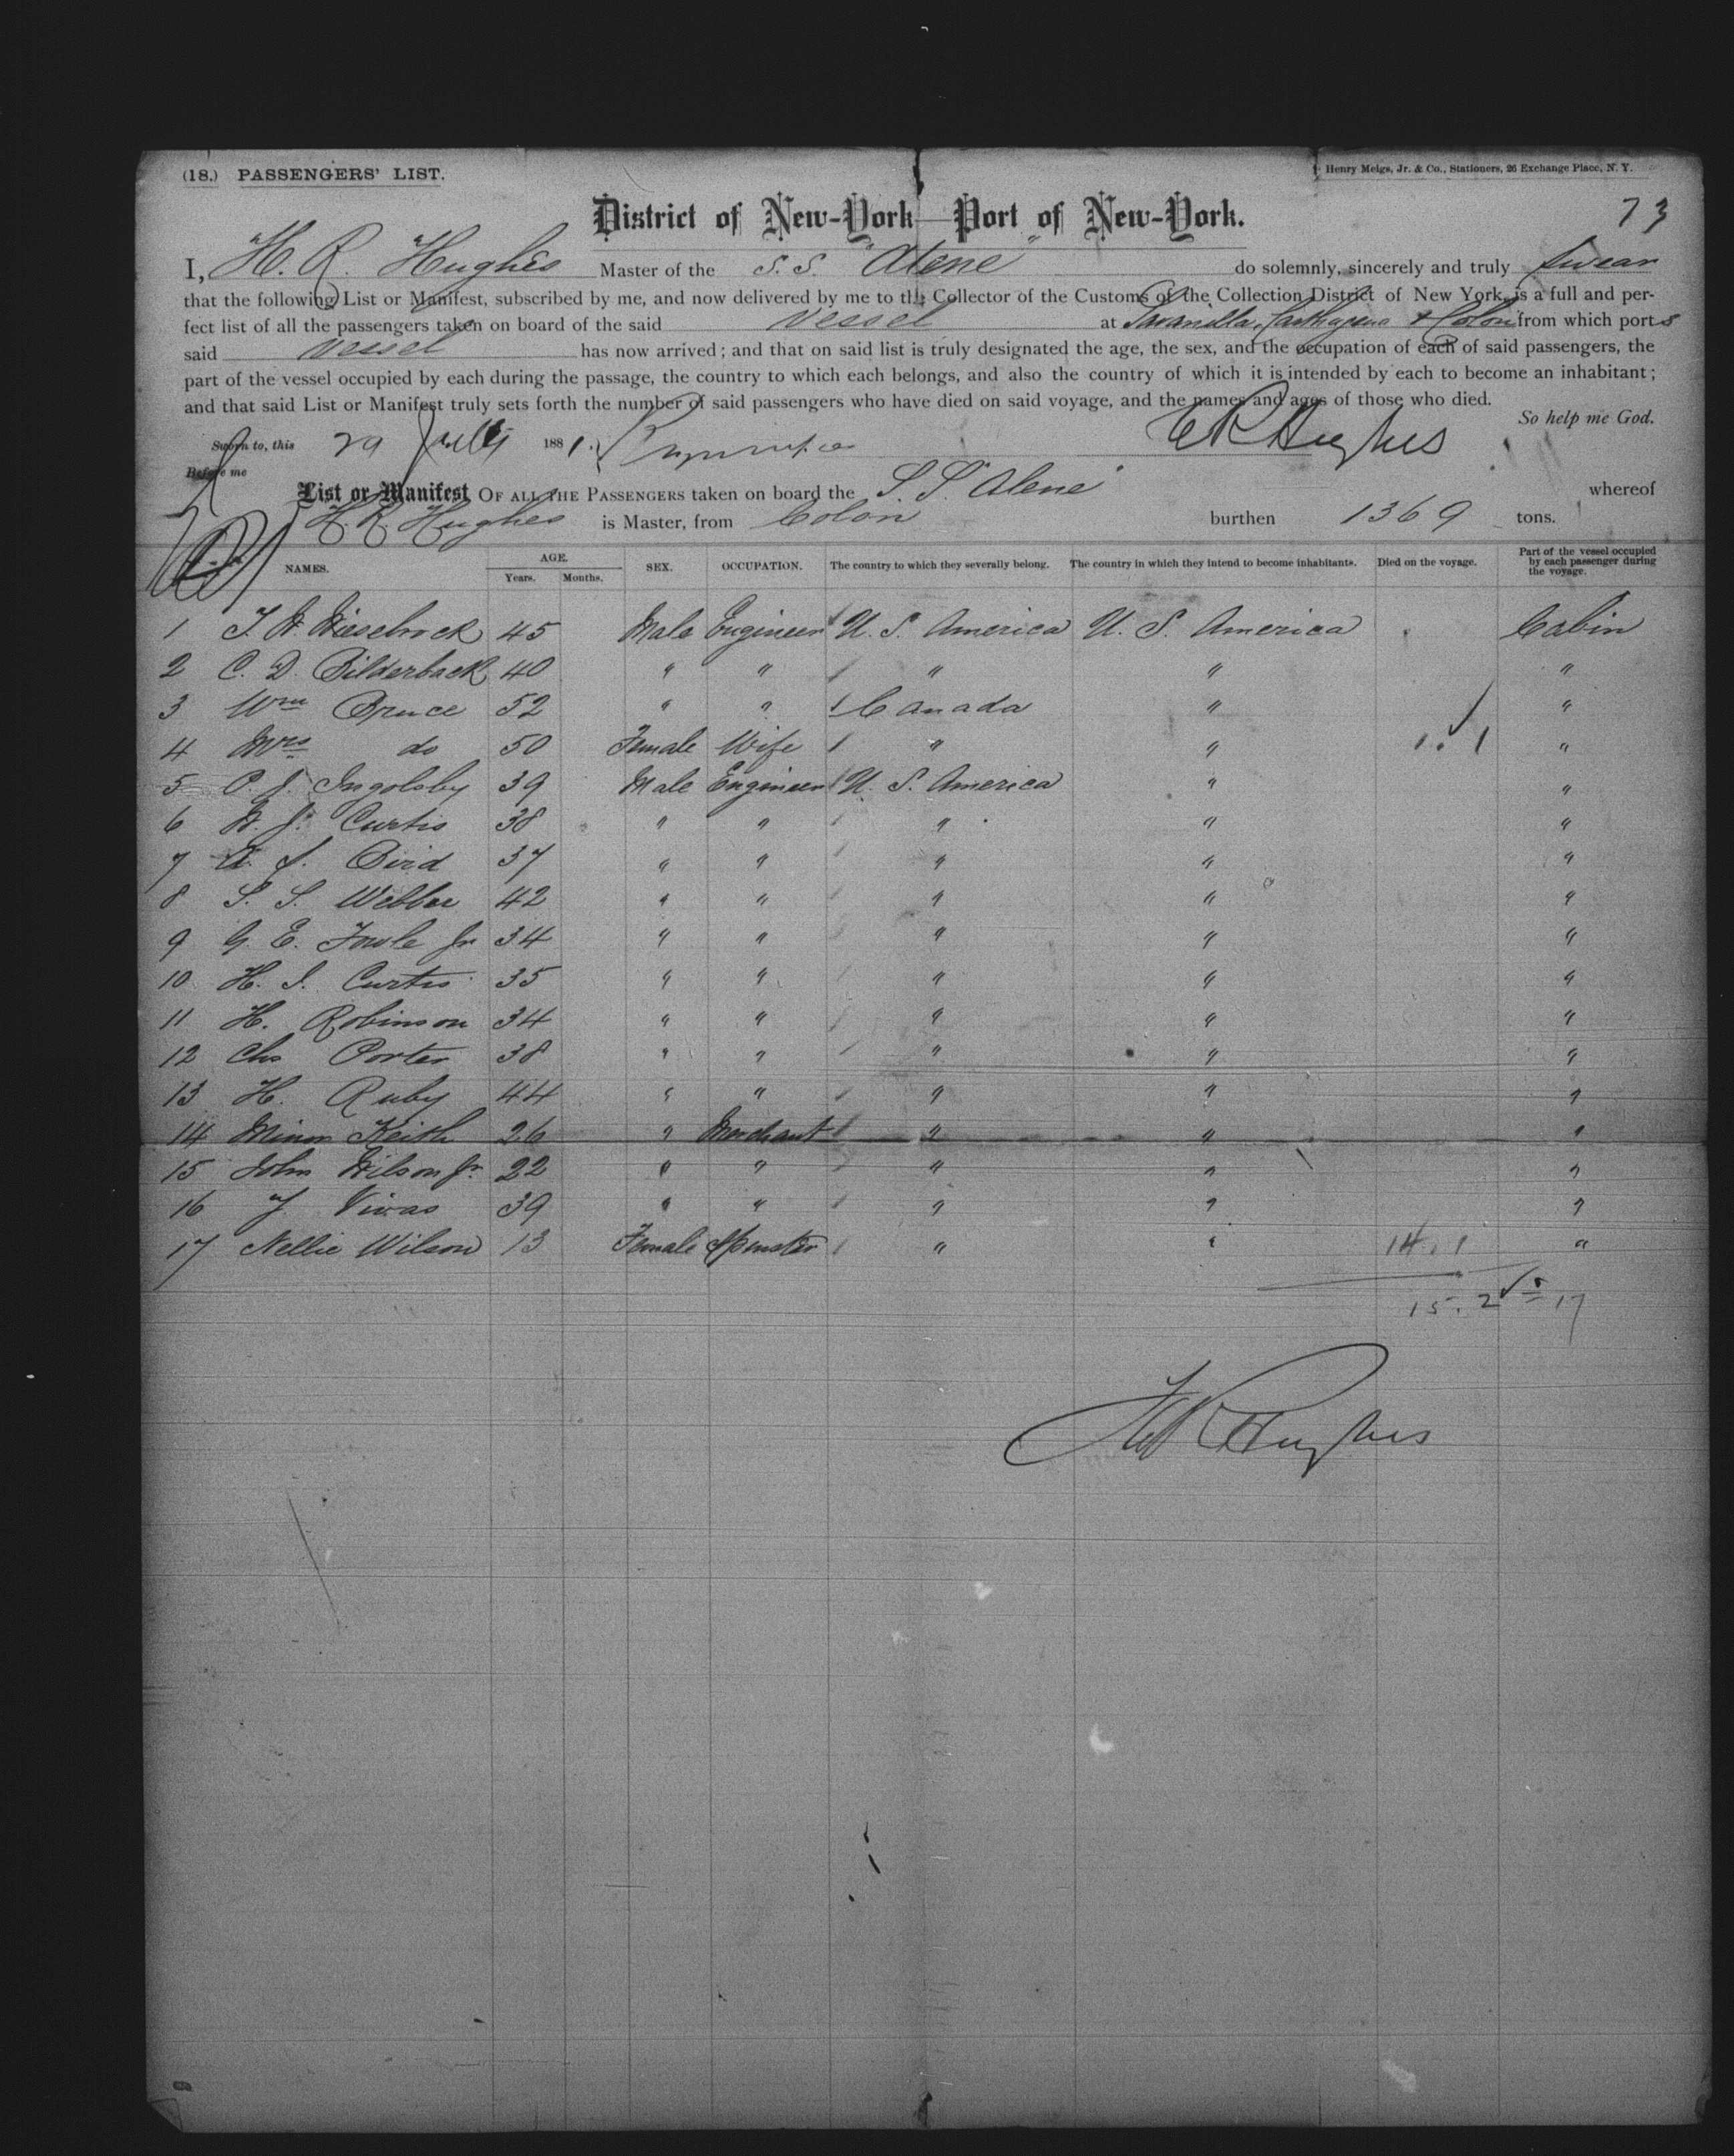 (18.) PASSENGERS' LIST.
Henry Meigs, Jr. & Co., Stationers, 26 Exchange Place, N. Y.
73
District of New-York—Port of New-York.
I, H. R. Hughes Master of the S. S. "Alene" do solemnly, sincerely and truly swear
that the following List or Manifest, subscribed by me, and now delivered by me to the Collector of the Customs of the Collection District of New York, is a full and per-
fect list of all the passengers taken on board of the said Vessel at Savanilla, Carthagena & Colon from which ports
said Vessel has now arrived; and that on said list is truly designated the age, the sex, and the occupation of each of said passengers, the
part of the vessel occupied by each during the passage, the country to which each belongs, and also the country of which it is intended by each to become an inhabitant;
and that said List or Manifest truly sets forth the number of said passengers who have died on said voyage, and the names and ages of those who died.
So help me God.
Sworn to, this 29 July 1881. HRHughes
Before me
List or Manifest OF ALL THE PASSENGERS taken on board the S. S. Alene whereof
H. R. Hughes is Master, from Colon burthen 1369 tons.
NAMES. AGE. Years. Months. SEX. OCCUPATION. The country to which they severally belong. The country in which they intend to become inhabitants. Died on the voyage. Part of the vessel occupied by each passenger during the voyage.
1 45 Male Engineer U. S. America U. S. America Cabin
2 C. D. Bilderback 40 " " " " "
3 Wm Bruce 52 " " Canada " "
4 Mrs do 50 Female Wife " " 1. 1 "
5 P. J. Ingolsby 39 Male Engineer U. S. America " "
6 W. J. Curtis 38 " " " " "
7 Bird 37 " " " " "
8 S. S. Webber 42 " " " " "
9 G. E. Fowle Jr 34 " " " " "
10 H. S. Curtis 35 " " " " "
11 H. Robinson 34 " " " " "
12 Chs Porter 38 " " " " "
13 H. Ruby 44 " " " " "
14 Minor Keith 26 " Merchant " " "
15 John Wilson Jr. 22 " " " " "
16 J Vivas 39 " " " " "
17 Nellie Wilson 13 Female Spinster " " 14. 1 "
15. 2 = 17
HRHughes